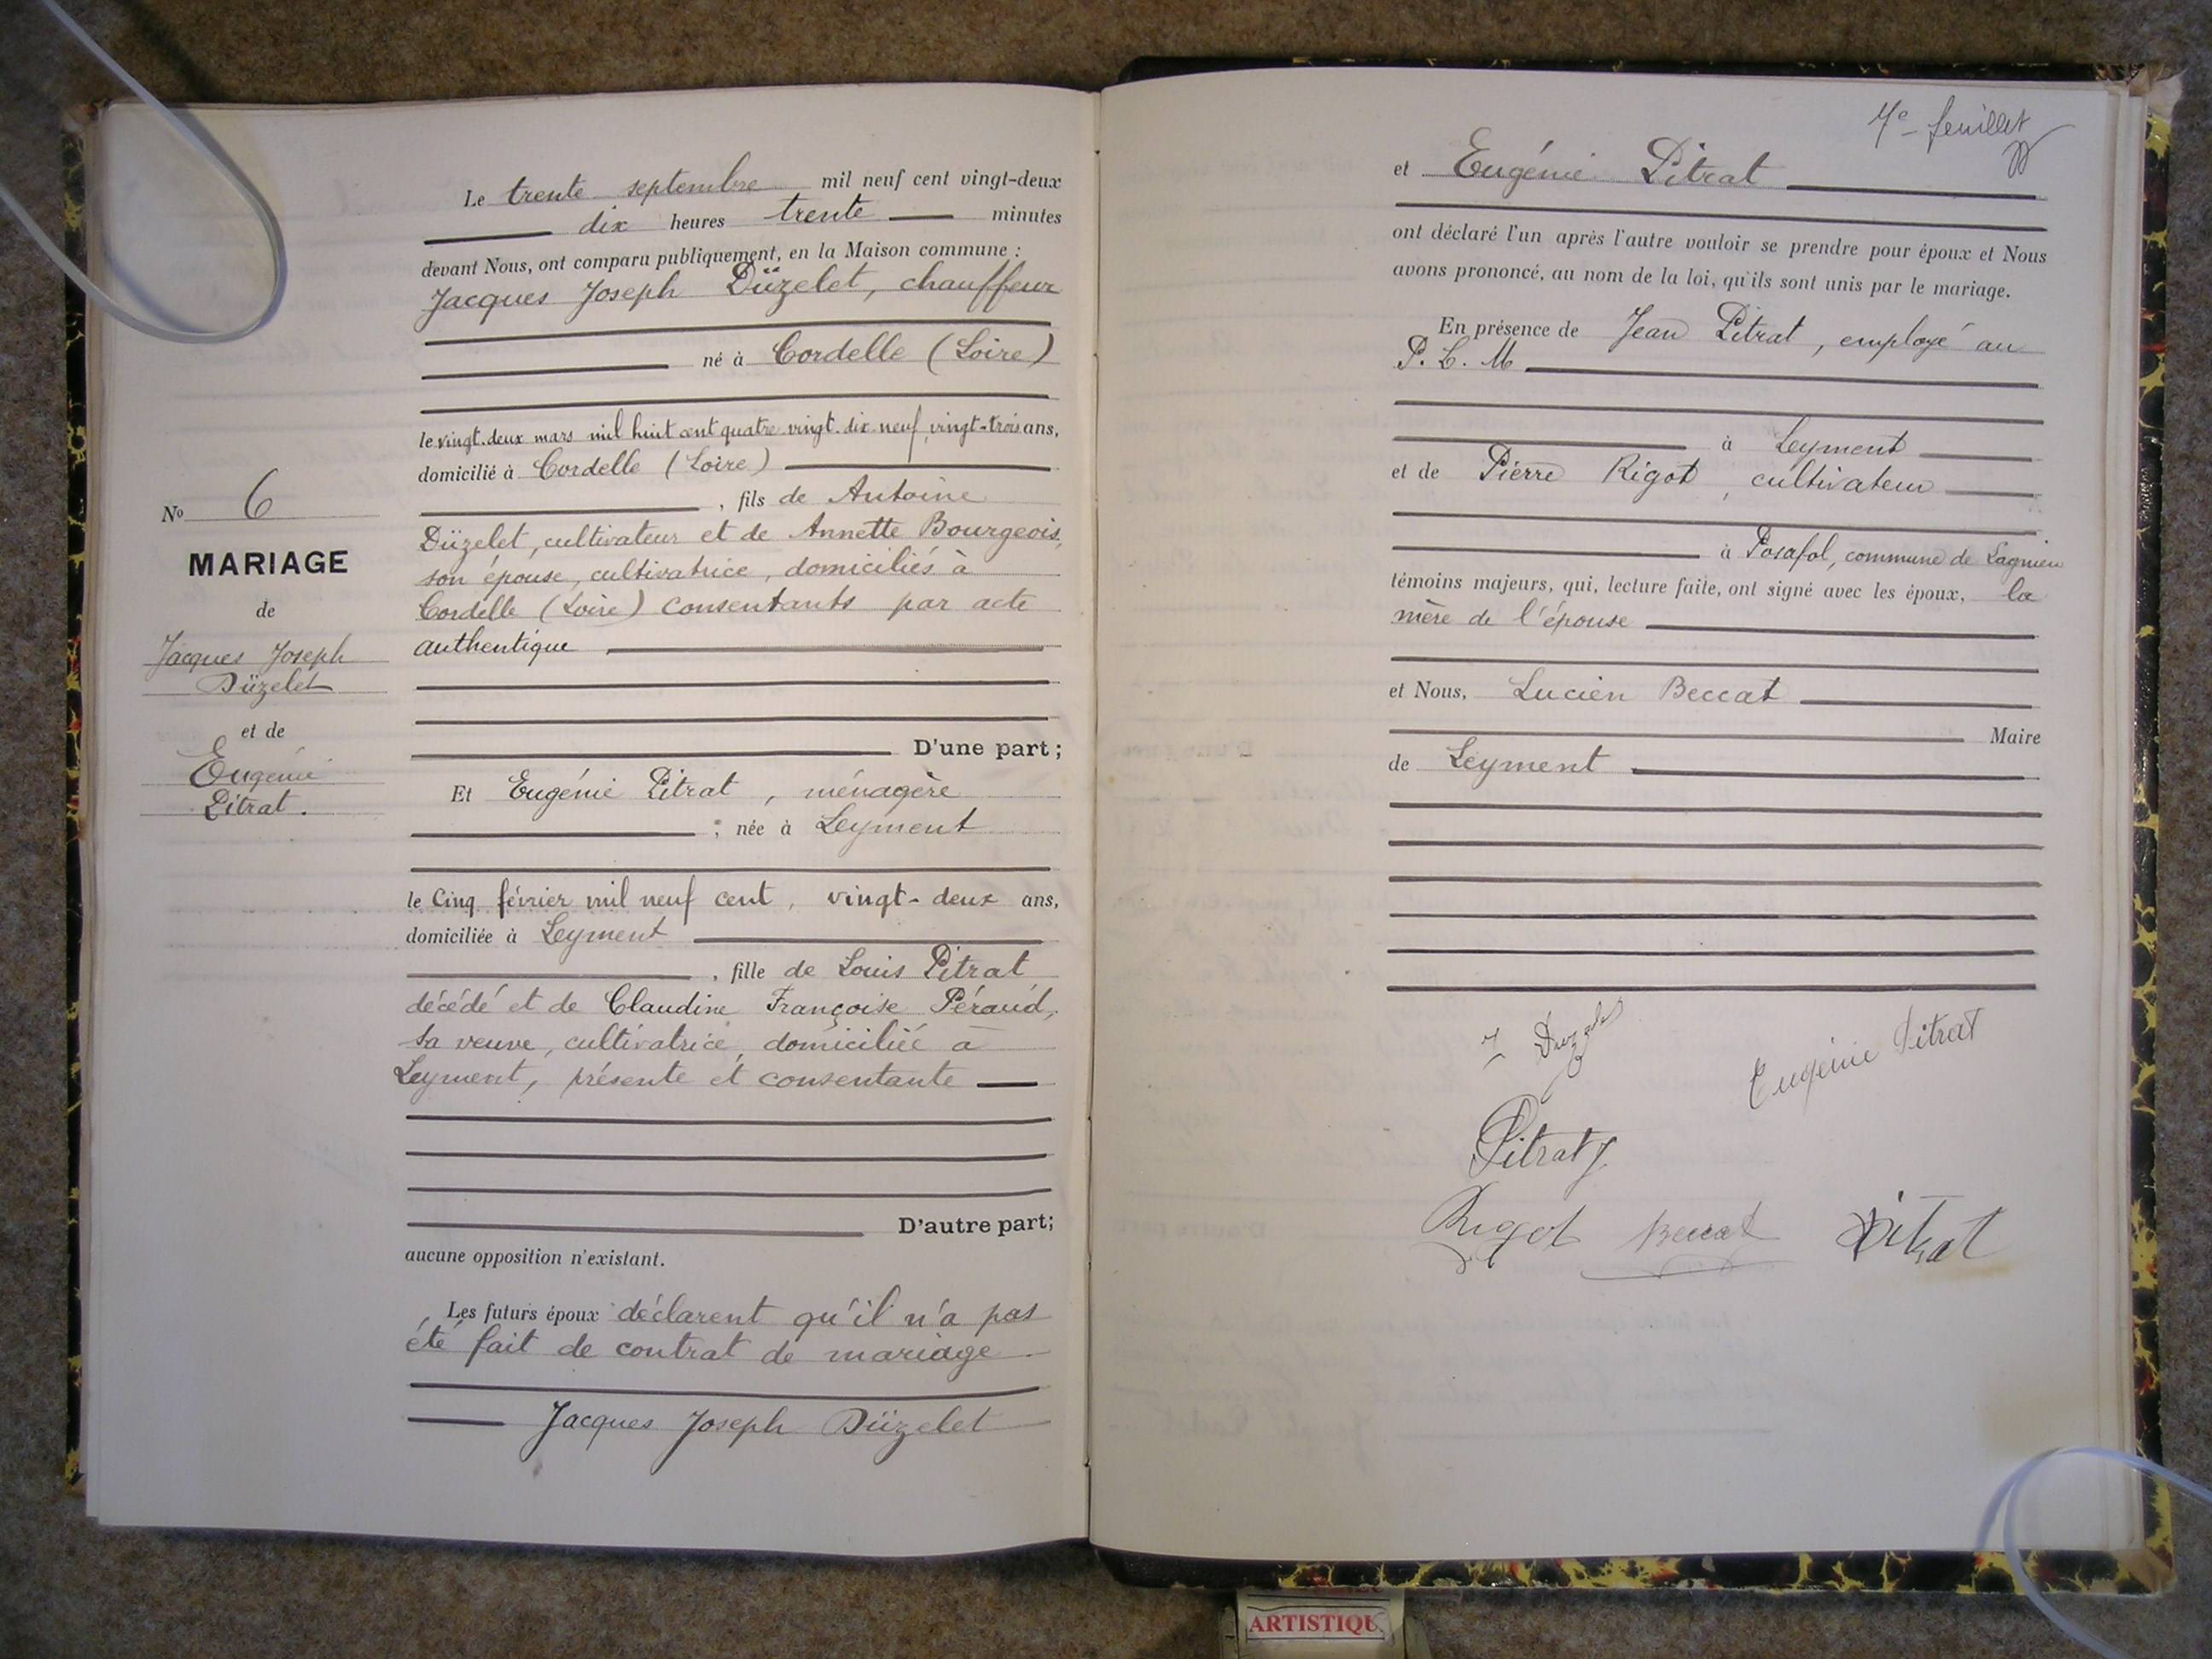 Le trente septembre mil neuf cent vingt-deux
dix heures trente minutes
devant Nous, ont comparu publiquement, en la Maison commune :
Jacques Joseph Düzelet, chauffeur
né à Cordelle (Loire)
le vingt-deux mars mil huit cent quatre vingt dix neuf, vingt-trois ans,
domicilié à Cordelle (Loire)
, fils de Antoine
Düzelet, cultivateur et de Annette Bourgeois,
son épouse, cultivatrice, domiciliés à
Cordelle (Loire) consentants par acte
authentique
D'une part;
Et Eugénie Pitrat, ménagère
; née à Leyment
le Cinq février mil neuf cent, vingt-deux ans,
domiciliée à Leyment
, fille de Louis Pitrat
décédé et de Claudine Françoise Péraud,
sa veuve, cultivatrice, domiciliée à
Leyment, présente et consentante
D'autre part;
aucune opposition n'existant.
Les futurs époux déclarent qu'il n'a pas
été fait de contrat de mariage
Jacques Joseph Düzelet
No 6
MARIAGE
de
Jacques Joseph
Düzelet
et de
Eugénie
Pitrat.
feuillet
et Eugénie Pitrat
ont déclaré l'un après l'autre vouloir se prendre pour époux et Nous
avons prononcé, au nom de la loi, qu'ils sont unis par le mariage.
En présence de Jean Pitrat, employé au
P. L. M
à Leyment
et de Pierre Rigot, cultivateur
à Posafol, commune de Lagnieu
témoins majeurs, qui, lecture faite, ont signé avec les époux, la
mère de l'épouse
et Nous, Lucien Beccat
Maire
de Leyment
Eugénie Pitrat
Pitrat J
Rigot Beccat Pitrat
ARTISTIQU